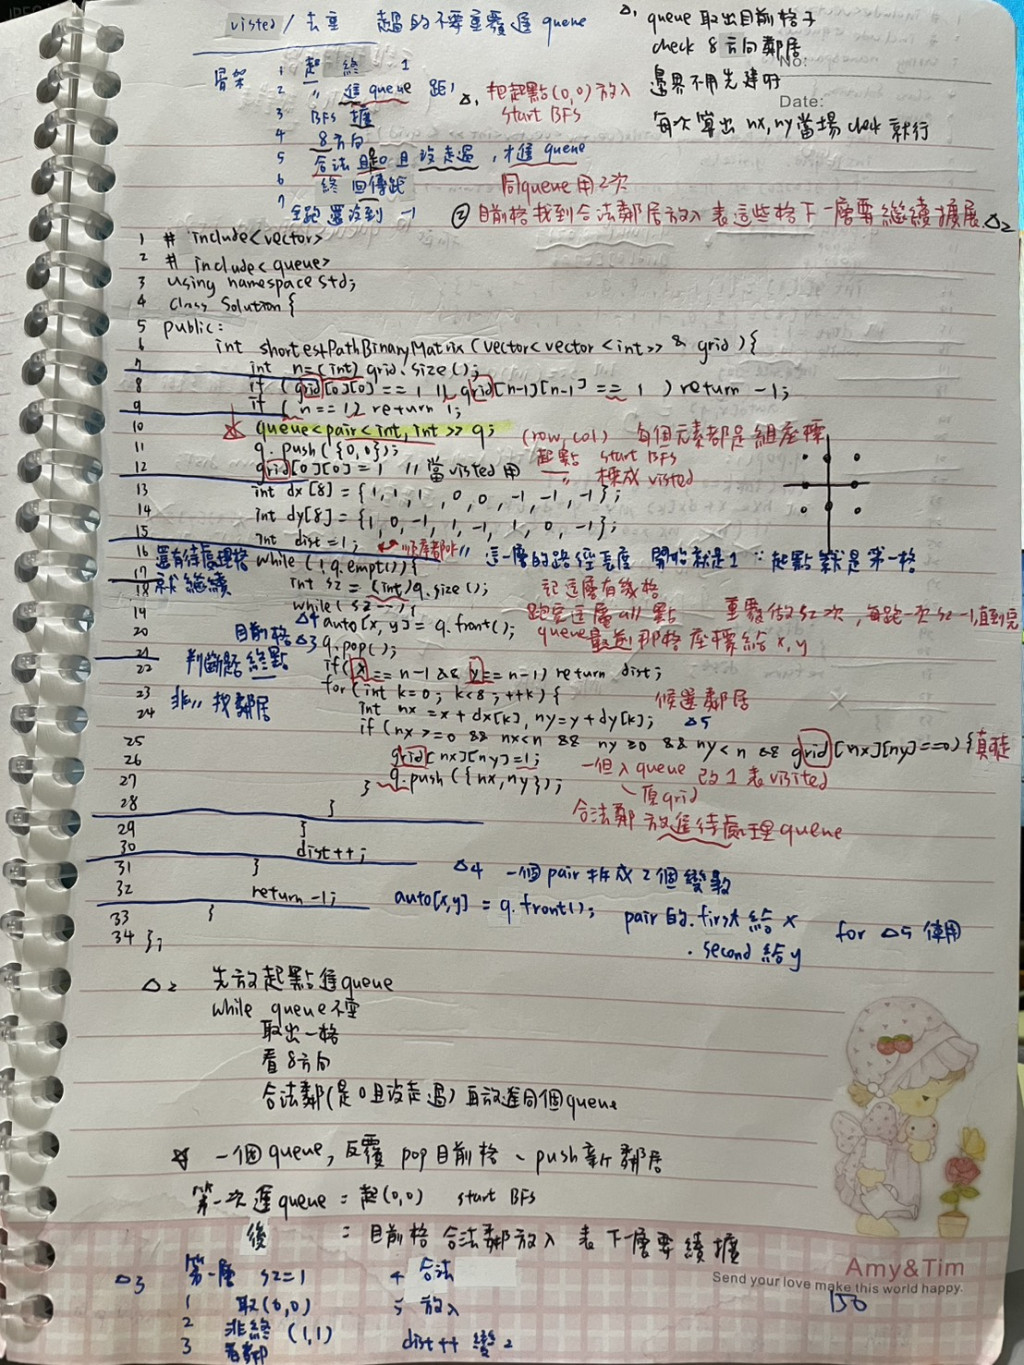 visted / 去重 走過的不要重覆進 queue
骨架 1 起 終 1
2 〃 進 queue 距1
3 BFS 擴
4 8方向
5 合法 且是0 且 沒走過，才進 queue
6 終 回傳距
7 全跑還沒到 -1
△1 queue 取出目前格子
check 8方向鄰居
No:
邊界不用先建好
Date:
每次算出 nx, ny 當場 check 就行
△1 把起點(0,0)放入
start BFS
同queue 用2次
② 目前格找到合法鄰居放入 表這些格下一層要繼續擴展 △2
1 # include<vector>
2 # include<queue>
3 using namespace std;
4 class Solution {
5 public:
6 int shortestPathBinaryMatrix(vector<vector<int>> & grid){
7 int n=(int) grid.size();
8 if (grid[0][0] == 1 || grid[n-1][n-1] == 1 ) return -1;
9 if (n==1) return 1;
10 queue<pair<int, int>> q; (row, col) 每個元素都是組座標
11 q.push({0,0}); 起點 start BFS
12 grid[0][0]=1 // 當visted用 〃 標成 visted
13 int dx[8] = {1,1,1,0,0,-1,-1,-1};
14 int dy[8] = {1,0,-1,1,-1,1,0,-1};
15 int dist=1; 順序都咋 // 這一層的路徑長度 開始就是1 ∵起點就是第一格
16 還有待處理格 while (!q.empty()){
17 就繼續
18 int sz = (int)q.size(); 記這層有幾格
19 while(sz--){ 跑完這層 all 點 重覆做sz次，每跑一次sz-1,直到完
20 △4 auto[x, y]= q.front(); queue最前那格座標給 x, y
目前格 △3 q.pop();
21
22 判斷題終點 if(x== n-1 && y== n-1) return dist;
23 非〃 找鄰居 for(int k=0; k<8; ++k){ 候選鄰居
24 int nx=x+dx[k], ny=y+dy[k]; △5
25 if(nx>=0 && nx<n && ny≥0 && ny<n && grid[nx][ny]==0){
26 grid[nx][ny]=1; 一但入queue 改1表visited
27 q.push({nx,ny}); 原grid
28 } 合法鄰 放進待處理queue
29 }
30 dist++;
31 } △4 一個pair拆成2個變數
32 return -1; auto[x,y] = q.front(); pair的.first給x for △5 使用
33 } .second給y
34 };
△2 先放起點進queue
while queue不空
取出一格
看8方向
合法鄰(是0且沒走過)再放進同個queue
☆ 一個queue, 反覆 pop目前格、push新鄰居
第一次進queue = 起(0,0) start BFS
後 = 目前格 合法鄰放入 表 下一層要續擴
Amy&Tim
Send your love make this world happy.
△3 第一層 sz=1 4 合法
1 取(0,0) 5 放入
2 非終 (1,1)
3 看鄰 dist++ 變2
150